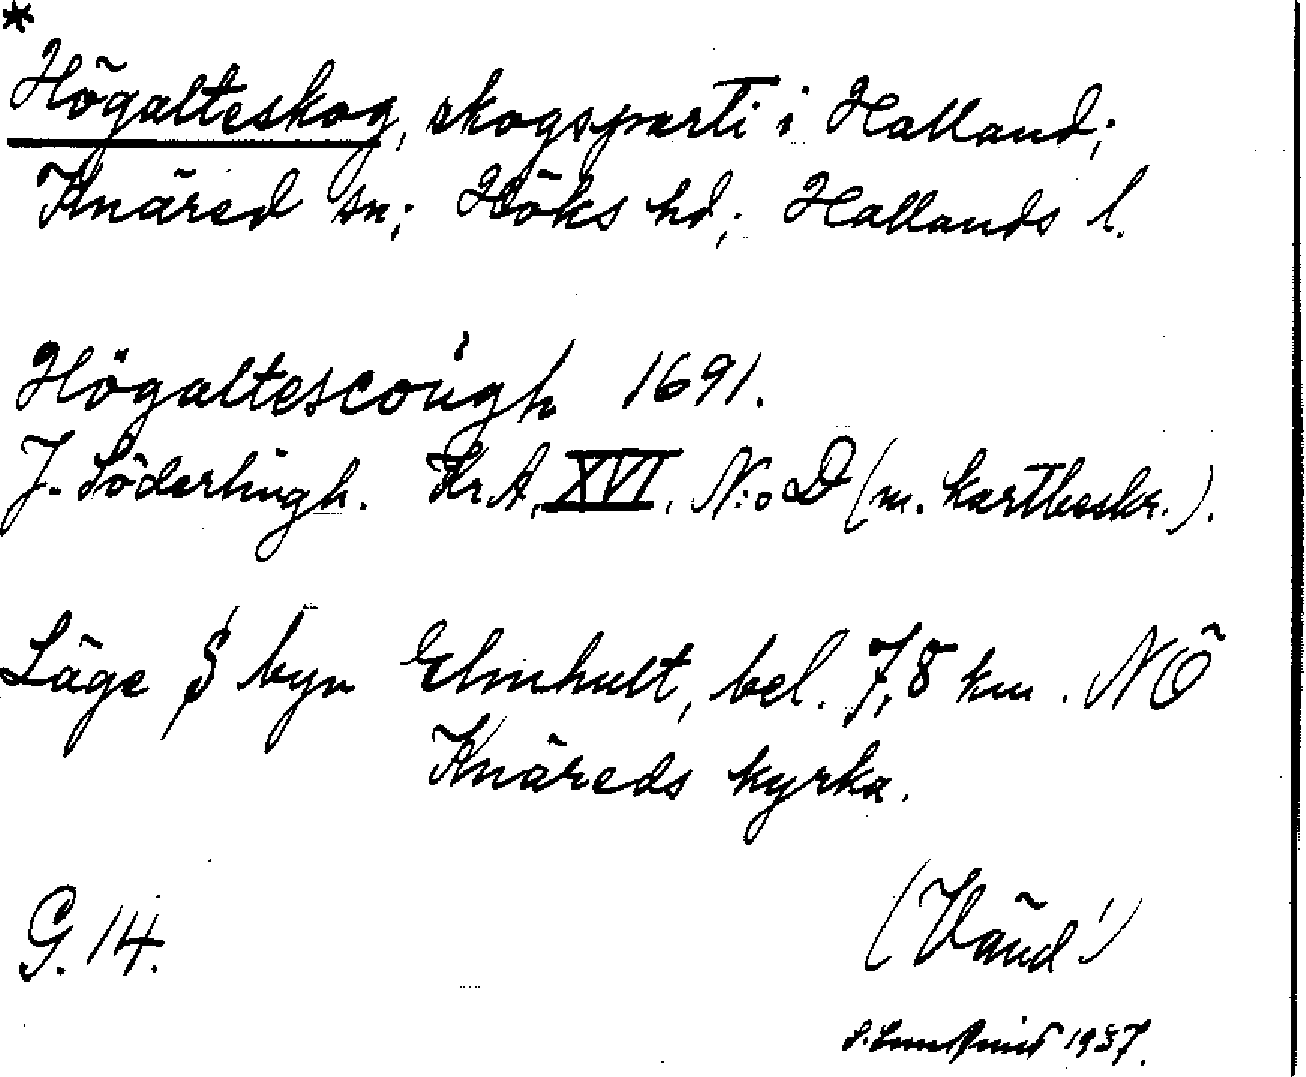 *
Högalteskog, skogsparti i Halland;
Knäred sn; Höks hd; Hallands l.
Högaltescough 1691.
J. Söderlingh. Kr.A. XVI. N:o D (m. kartbeskr.).
Läge § byn Elmhult, bel. 7,8 km. NÖ
Knäreds kyrka.
G. 14.
(Vänd!)
1937.